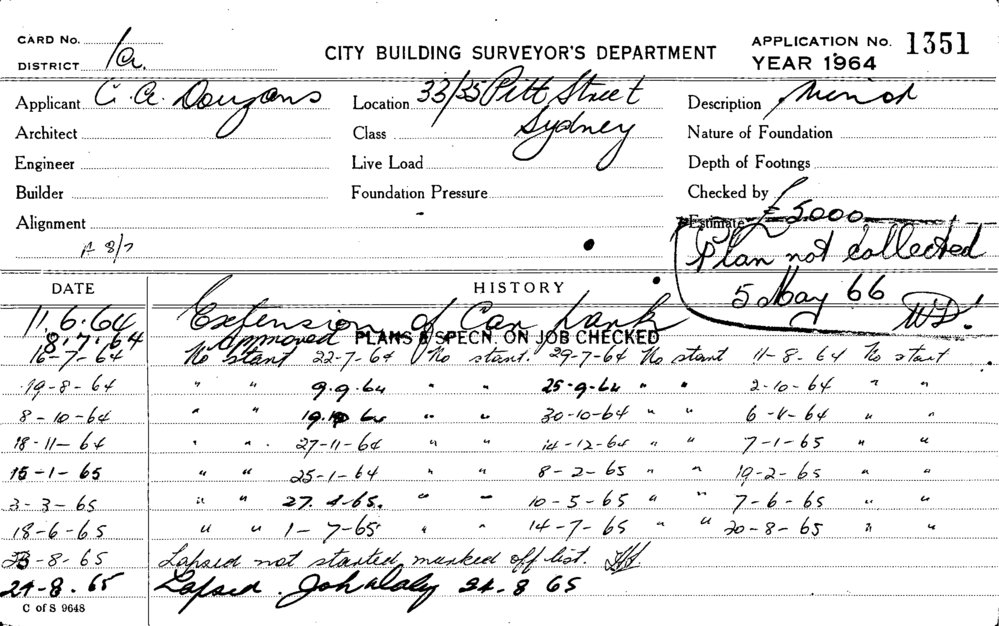 CARD No.
DISTRICT 1a.
CITY BUILDING SURVEYOR'S DEPARTMENT
APPLICATION No. 1351
YEAR 1964
Applicant C. A. Location 33/35 Pitt Street Description Minor
Architect Class Sydney Nature of Foundation
Engineer Live Load Depth of Footings
Builder Foundation Pressure Checked by
Alignment Estimate £5000
A 8/7
Plan not collected
5 May 66
DATE HISTORY
11.6.64 Extension of Car park
8.7.64 Approved PLANS & SPECN. ON JOB CHECKED
16-7-64 No start 22-7-64 No start. 29-7-64 No start 11-8-64 No start
19-8-64 " " 9.9.64 " " 25-9-64 " " 2-10-64 " "
8-10-64 " " 64 " " 30-10-64 " " 6-11-64 " "
18-11-64 " " 27-11-64 " " 14-12-64 " " 7-1-65 " "
15-1-65 " " 25-1-64 " " 8-2-65 " " 19-2-65 " "
3-3-65 " " 27.4-65. " " 10-5-65 " " 7-6-65 " "
18-6-65 " " 1-7-65 " " 14-7-65 " " 20-8-65 " "
23-8-65 Lapsed not started marked off list.
24-8.65 Lapsed. John Daly 24-8 65
C of S 9648